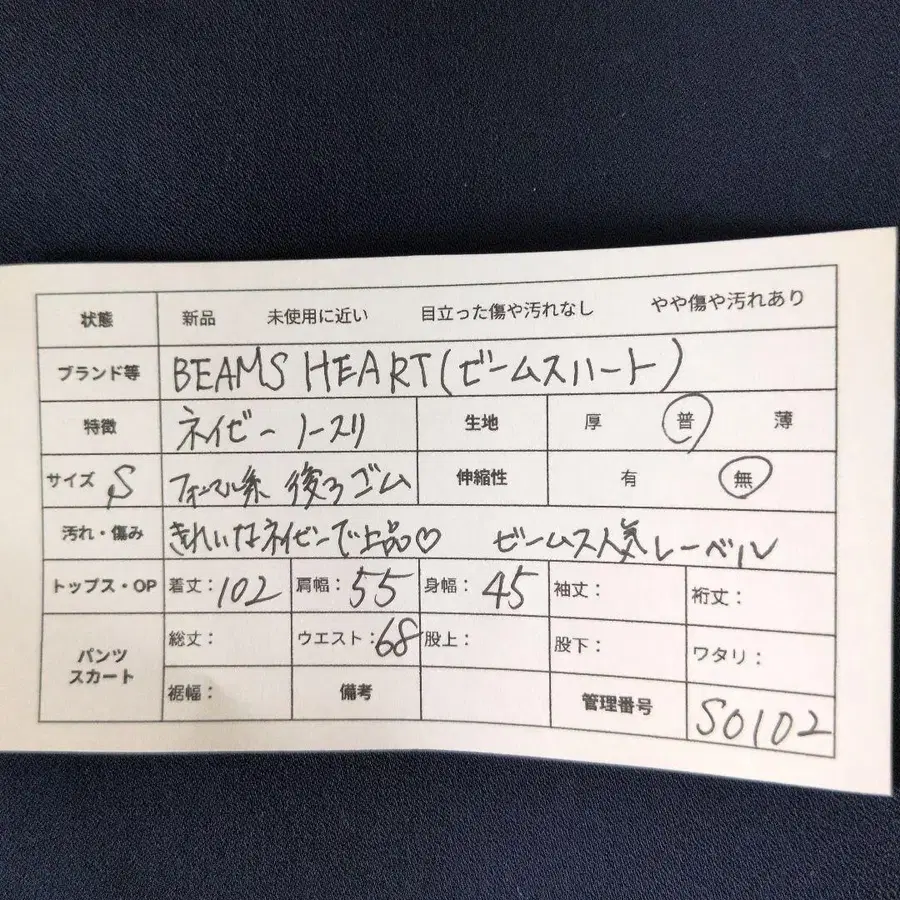 状態 新品 未使用に近い 目立った傷や汚れなし やや傷や汚れあり
ブランド等 BEAMS HEART(ビームスハート)
特徴 ネイビー ノースリ 生地 厚 普 薄
サイズ S フォーマル系 後ろゴム 伸縮性 有 無
汚れ・傷み きれいなネイビーで上品♡ ビームス人気レーベル
トップス・OP 着丈：102 肩幅：55 身幅：45 袖丈： 裄丈：
パンツ スカート 総丈： ウエスト：68 股上： 股下： ワタリ：
裾幅： 備考 管理番号 S0102